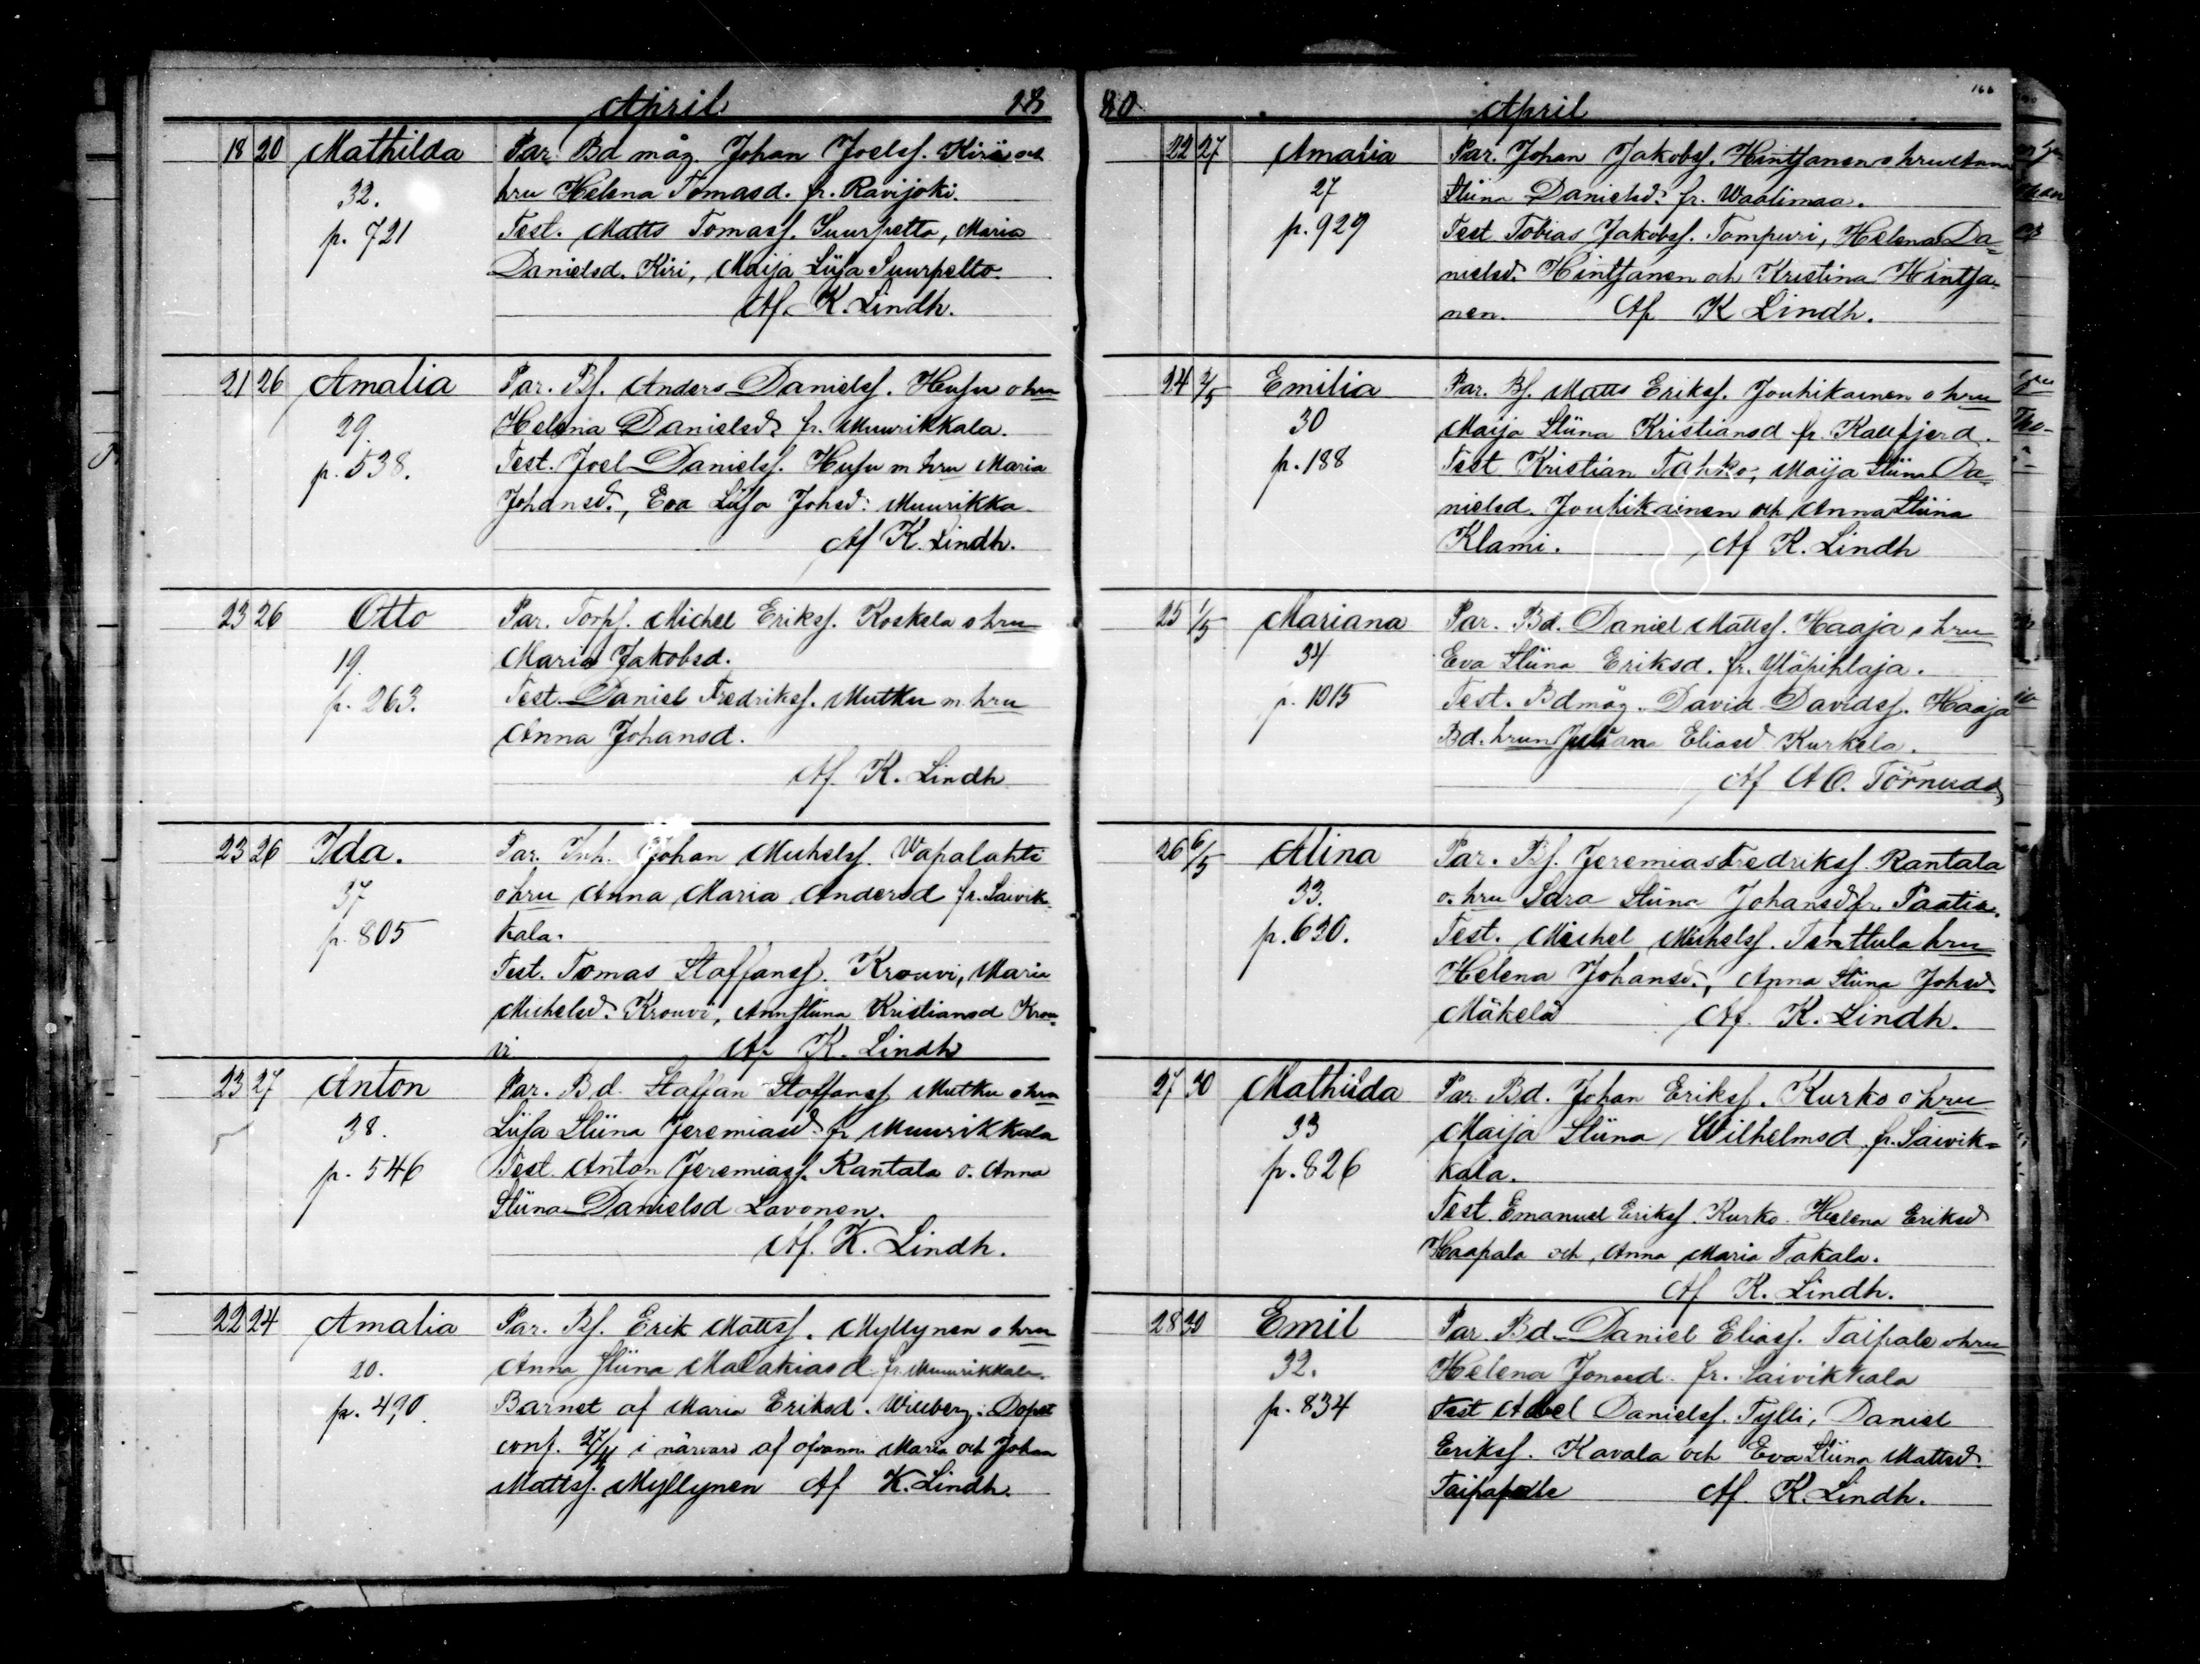 April 18
18 20 Mathilda Par. Bd måg. Johan Joelsf. Kiri och
32. hru Helena Tomasd. fr. Ravijoki.
p. 721 Test. Matts Tomasf. Suurpelto, Maria
Danielsd. Kiri, Maija Liisa Suurpelto.
Af. K. Lindh.
21 26 Amalia Par. Bf. Anders Danielsf. Husu o hru
29. Helena Danielsd. fr. Muurikkala.
p. 538. Test. Joel Danielsf. Husu m hru Maria
Johansd., Eva Liisa Johsd: Muurikka
Af K. Lindh.
23 26 Otto Par. Torpf. Michel Eriksf. Koskela o hru
19. Maria Jakobsd.
p. 263. Test. Daniel Fredriksf. Mutku m. hru
Anna Johansd.
Af. K. Lindh
23 26 Ida. Par. Inh. Johan Michelsf. Wapalahti
37 o hru Anna Maria Andersd fr. Saivik-
p. 805 kala.
Test. Tomas Staffansf. Krouvi, Maria
Michelsd. Krouvi, Annstiina Kristiansd Krou-
vi Af K. Lindh
23 27 Anton Par. Bd. Staffan Staffansf Mutku o hru
38. Liisa Stiina Jeremiasd. fr Muurikkala
p. 546 Test. Anton Jeremiasf. Rantala o. Anna
Stiina Danielsd Lavonen.
Af. K. Lindh.
22 24 Amalia Par. Bf. Erik Mattsf. Myllynen o hru
20. Anna Stiina Malakiasd fr. Muurikkala.
p. 490 Barnet af Maria Eriksd. Willberg. Dopet
conf. 27/4 i närvaro af ofvann. Maria och Johan
Mattsf. Myllynen Af K. Lindh.
80 April 166
22 27 Amalia Par. Johan Jakobsf. Hintsanen o hru Anna
27 Stiina Danielsd. fr. Waalimaa.
p. 929 Test. Tobias Jakobsf. Tompuri, Helena Da-
nielsd. Hintsanen och Kristina Hintsa-
nen. Af K Lindh.
24 2/5 Emilia Par. Bf. Matts Eriksf. Jouhikainen o hru
30 Maija Stiina Kristiansd fr. Kallfjerd.
p. 188 Test Kristian Tahko, Maija Stiina Da-
nielsd. Jouhikainen och Anna Stiina
Klami. Af K. Lindh
25 1/5 Mariana Par. Bd. Daniel Mattsf. Haaja o hru
34 Eva Stiina Eriksd. fr. Yläpihlaja.
p. 1015 Test. Bdmåg. David Davidsf. Haaja
Bd. hrun Juliana Eliasd Kurkela.
Af A O. Törnudd
26 6/5 Alina Par. Bf. Jeremias Fredriksf Rantala
33. o. hru Sara Stiina Johansd fr. Paatia.
p. 630. Test. Michel Michelsf. Tenttula hru
Helena Johansd., Anna Stiina Johsd.
Mäkelä Af. K. Lindh.
27 30 Mathilda Par. Bd. Johan Eriksf. Kurko o hru
33 Maija Stiina Wilhelmsd fr. Saivik-
p. 826 kala.
Test. Emanuel Eriksf. Kurko. Helena Eriksd
Haapala och Anna Maria Takala.
Af K. Lindh.
28 30 Emil Par. Bd. Daniel Eliasf. Taipale o hru
32. Helena Jonasd. fr. Saivikkala
p. 834 Test Abel Danielsf. Tylli, Daniel
Eriksf. Kavala och Eva Stiina Mattsd.
Af. K. Lindh.